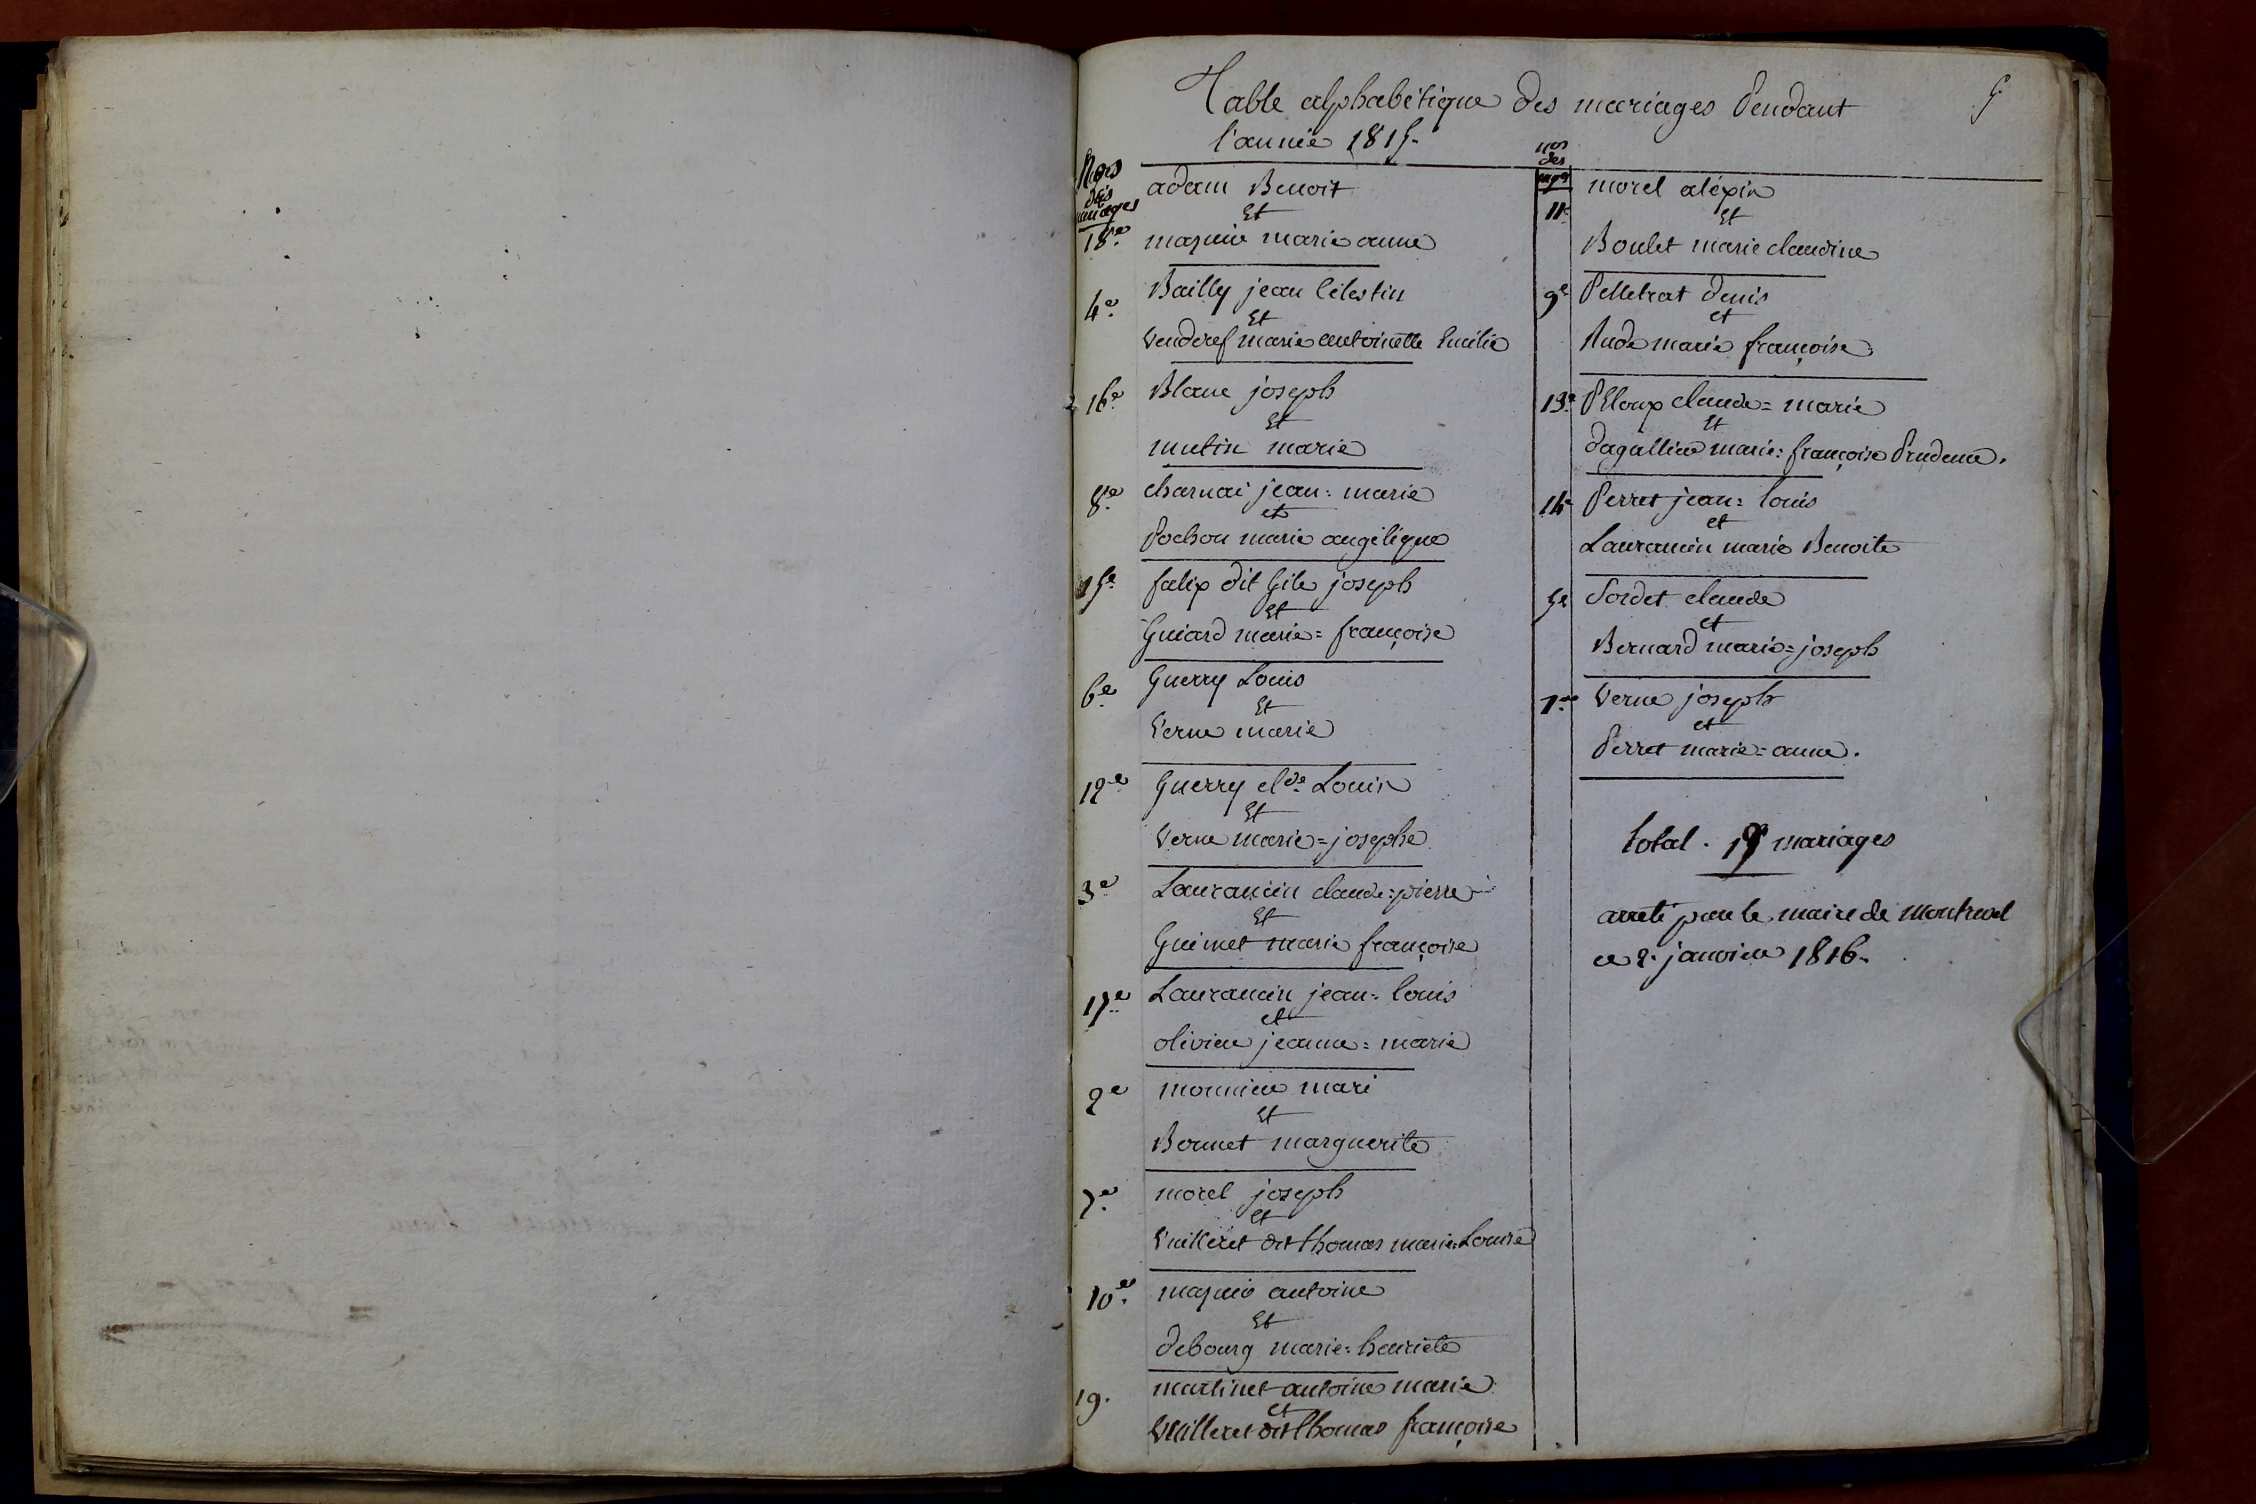 Table alphabétique des mariages Pendant
5
l'année 1815.
Nos
des
mariages
adam Benoit
Et
18e
marie anne
4e
Bailly jean Célestin
Et
marie antoinette Emilie
16e
Blanc joseph
Et
mutin marie
8e
charnai jean = marie
et
Pochon marie angélique
15e
felix dit Gile joseph
Et
Guiard marie = françoise
6e
Guerry Louis
Et
Verne marie
12e
Guerry clde Louis
Et
Verne marie = josephe
3e
Laurancin claude = pierre
Et
Guimet marie françoise
17e
Laurancin jean = louis
et
olivier jeanne = marie
2e
monnier mari
Et
Bernet marguerite
7e
morel joseph
et
Vuilleret dit thomas marie = Louise
10e
antoine
Et
debourg marie = henriete
19.
martinet antoine marie
et
Vuilleret dit thomas françoise
nos
des
mges
11e
morel aléxin
Et
Boulet marie claudine
9e
Pelletrat denis
et
Rude marie françoise
13e
Peloux claude = marie
Et
dagallier marie = françoise Prudence.
14e
Perret jean = louis
et
Laurancin marie Benoite
5e
Sordet claude
et
Bernard marie = joseph
1er
Verne joseph
et
Perret marie = anne.
total . 19 mariages
arreté par le maire de Montrevel
ce 2. janvier 1816.